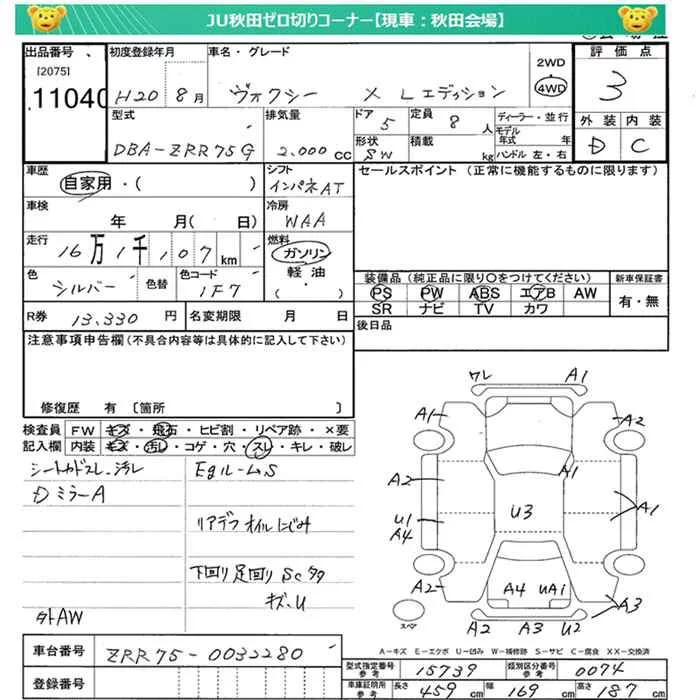 JU秋田ゼロ切りコーナー【現車：秋田会場】
出品番号 初度登録年月 車名・グレード 2WD・4WD 評価点
[2075] 11040 H20 8月 ヴォクシー X Lエディション 3
型式 排気量 ドア 5 定員 8人 ディーラー・並行 外装 内装
DBA-ZRR75G 2,000cc 形状 SW 積載 kg モデル年式 年 ハンドル 左・右 D C
車歴 シフト セールスポイント(正常に機能するものに限ります)
自家用・( ) インパネAT
車検 冷房
年 月( 日) WAA
走行 燃料
16万1千107km ガソリン
色 色替 色コード 軽油・ 装備品(純正品に限り○をつけてください) 新車保証書
シルバー 1F7 ( ) PS PW ABS エアB AW 有・無
R券 13,330円 名変期限 月 日 SR ナビ TV カワ
注意事項申告欄(不具合内容等は具体的に記入して下さい) 後日品
修復歴 有〔箇所 〕
検査員 FW キズ・飛石・ヒビ割・リペア跡・×要
記入欄 内装 キズ・汚レ・コゲ・穴・スレ・キレ・破レ
シートカドスレ、汚レ EgルームS
DミラーA
リアデフオイルにじみ
下回り足回りSc タタ
キズ、U
外AW
ワレ A1
A1 A2
A2 A1
U1 U3 A1
A4
A2 A4 UA1 A3
スペア A2 A3 U2
A－キズ E－エクボ U－凹み W－補修跡 S－サビ C－腐食 XX－交換済
車台番号 ZRR75-0032280
登録番号
型式指定番号参考 15739 類別区分番号参考 0074
車庫証明所参考 長さ 459cm 幅 169cm 高さ 187cm